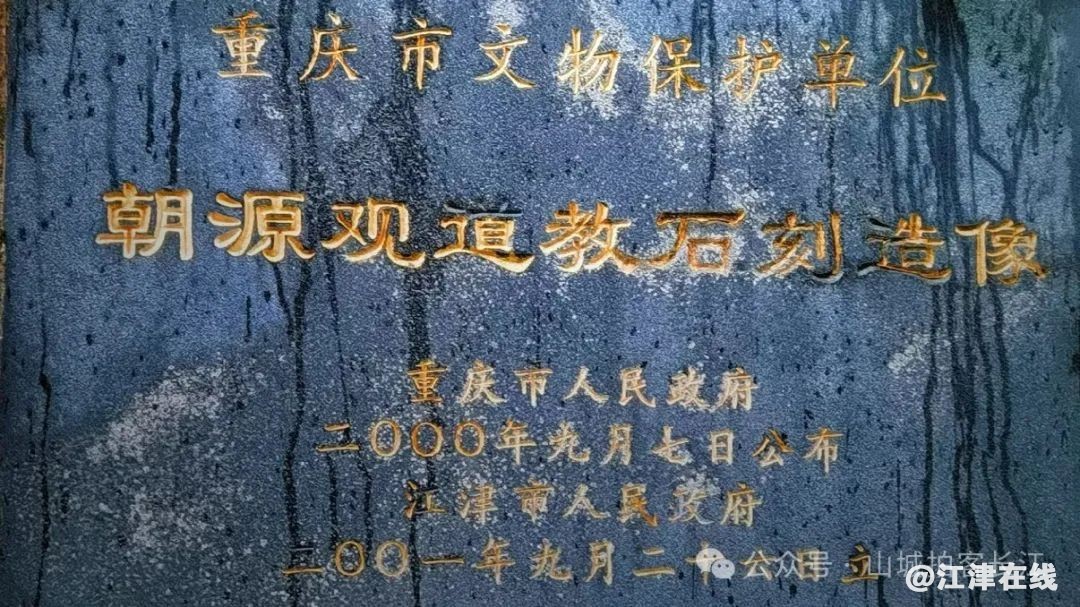 重庆市文物保护单位
朝源观道教石刻造像
重庆市人民政府
二〇〇〇年九月七日公布
江津市人民政府
二〇〇一年九月二十日立
公众号·山城拍客长江
@江津在线